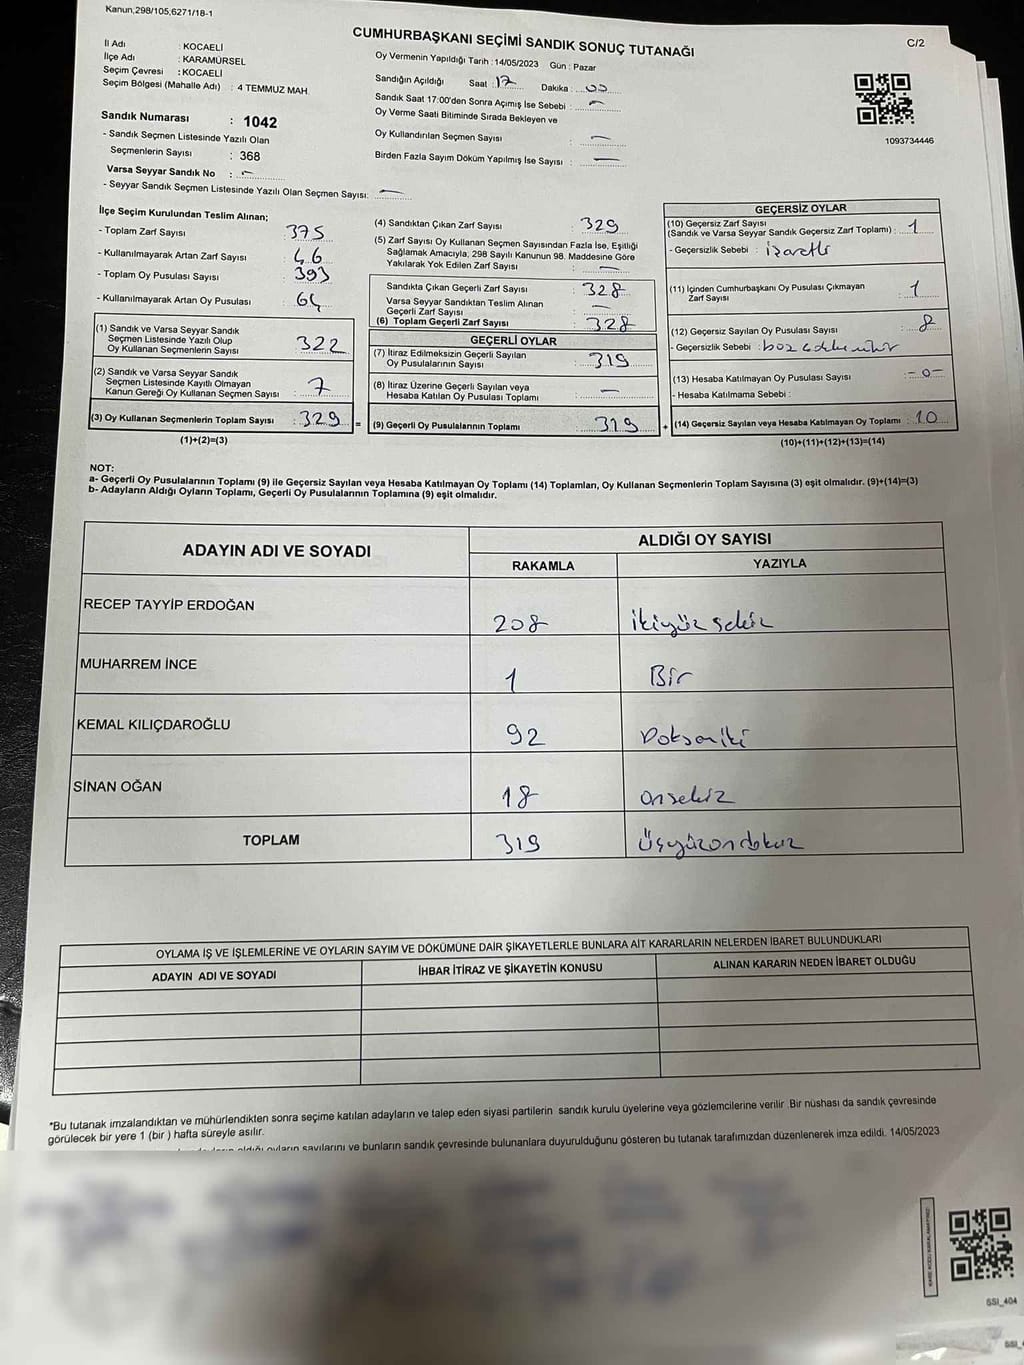 Kanun,298/105,6271/18-1
CUMHURBAŞKANI SEÇİMİ SANDIK SONUÇ TUTANAĞI
C/2
İl Adı : KOCAELİ
İlçe Adı : KARAMÜRSEL
Seçim Çevresi : KOCAELİ
Seçim Bölgesi (Mahalle Adı) : 4 TEMMUZ MAH.
Sandık Numarası : 1042
- Sandık Seçmen Listesinde Yazılı Olan
Seçmenlerin Sayısı : 368
Varsa Seyyar Sandık No : —
- Seyyar Sandık Seçmen Listesinde Yazılı Olan Seçmen Sayısı: —
Oy Vermenin Yapıldığı Tarih : 14/05/2023 Gün : Pazar
Sandığın Açıldığı Saat : 17 Dakika : 00
Sandık Saat 17:00'den Sonra Açımış İse Sebebi : —
Oy Verme Saati Bitiminde Sırada Bekleyen ve
Oy Kullandırılan Seçmen Sayısı : —
Birden Fazla Sayım Döküm Yapılmış İse Sayısı : —
1093734446
İlçe Seçim Kurulundan Teslim Alınan;
- Toplam Zarf Sayısı : 375
- Kullanılmayarak Artan Zarf Sayısı : 46
- Toplam Oy Pusulası Sayısı : 393
- Kullanılmayarak Artan Oy Pusulası : 64
(1) Sandık ve Varsa Seyyar Sandık
Seçmen Listesinde Yazılı Olup
Oy Kullanan Seçmenlerin Sayısı : 322
(2) Sandık ve Varsa Seyyar Sandık
Seçmen Listesinde Kayıtlı Olmayan
Kanun Gereği Oy Kullanan Seçmen Sayısı : 7
(3) Oy Kullanan Seçmenlerin Toplam Sayısı : 329 =
(1)+(2)=(3)
(4) Sandıktan Çıkan Zarf Sayısı : 329
(5) Zarf Sayısı Oy Kullanan Seçmen Sayısından Fazla İse, Eşitliği
Sağlamak Amacıyla, 298 Sayılı Kanunun 98. Maddesine Göre
Yakılarak Yok Edilen Zarf Sayısı : —
Sandıkta Çıkan Geçerli Zarf Sayısı : 328
Varsa Seyyar Sandıktan Teslim Alınan
Geçerli Zarf Sayısı : —
(6) Toplam Geçerli Zarf Sayısı : 328
GEÇERLİ OYLAR
(7) İtiraz Edilmeksizin Geçerli Sayılan
Oy Pusulalarının Sayısı : 319
(8) İtiraz Üzerine Geçerli Sayılan veya
Hesaba Katılan Oy Pusulası Toplamı : —
(9) Geçerli Oy Pusulalarının Toplamı : 319 +
GEÇERSİZ OYLAR
(10) Geçersiz Zarf Sayısı
(Sandık ve Varsa Seyyar Sandık Geçersiz Zarf Toplamı) : 1
- Geçersizlik Sebebi : izaretli
(11) İçinden Cumhurbaşkanı Oy Pusulası Çıkmayan
Zarf Sayısı : 1
(12) Geçersiz Sayılan Oy Pusulası Sayısı : 8
- Geçersizlik Sebebi :
(13) Hesaba Katılmayan Oy Pusulası Sayısı : -0-
- Hesaba Katılmama Sebebi :
(14) Geçersiz Sayılan veya Hesaba Katılmayan Oy Toplamı : 10
(10)+(11)+(12)+(13)=(14)
NOT:
a- Geçerli Oy Pusulalarının Toplamı (9) ile Geçersiz Sayılan veya Hesaba Katılmayan Oy Toplamı (14) Toplamları, Oy Kullanan Seçmenlerin Toplam Sayısına (3) eşit olmalıdır. (9)+(14)=(3)
b- Adayların Aldığı Oyların Toplamı, Geçerli Oy Pusulalarının Toplamına (9) eşit olmalıdır.
ADAYIN ADI VE SOYADI
ALDIĞI OY SAYISI
RAKAMLA YAZIYLA
RECEP TAYYİP ERDOĞAN 208 ikiyüz sekiz
MUHARREM İNCE 1 Bir
KEMAL KILIÇDAROĞLU 92 Doksaniki
SİNAN OĞAN 18 onsekiz
TOPLAM 319 Üçyüzondokuz
OYLAMA İŞ VE İŞLEMLERİNE VE OYLARIN SAYIM VE DÖKÜMÜNE DAİR ŞİKAYETLERLE BUNLARA AİT KARARLARIN NELERDEN İBARET BULUNDUKLARI
ADAYIN ADI VE SOYADI İHBAR İTİRAZ VE ŞİKAYETİN KONUSU ALINAN KARARIN NEDEN İBARET OLDUĞU
*Bu tutanak imzalandıktan ve mühürlendikten sonra seçime katılan adayların ve talep eden siyasi partilerin sandık kurulu üyelerine veya gözlemcilerine verilir .Bir nüshası da sandık çevresinde
görülecek bir yere 1 (bir ) hafta süreyle asılır.
oyların sayılarını ve bunların sandık çevresinde bulunanlara duyurulduğunu gösteren bu tutanak tarafımızdan düzenlenerek imza edildi. 14/05/2023
SSI_404